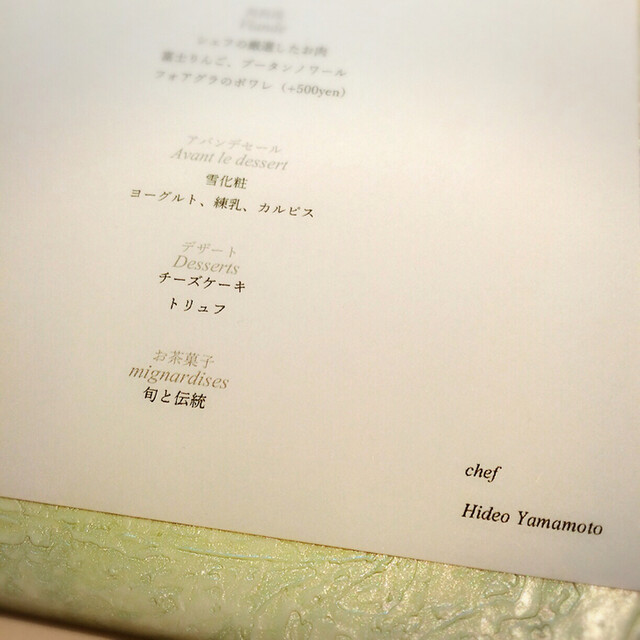 シェフの厳選したお肉
富士りんご、ブータンノワール
フォアグラのポワレ（+500yen）
アバンデセール
Avant le dessert
雪化粧
ヨーグルト、練乳、カルピス
デザート
Desserts
チーズケーキ
トリュフ
お茶菓子
mignardises
旬と伝統
chef
Hideo Yamamoto